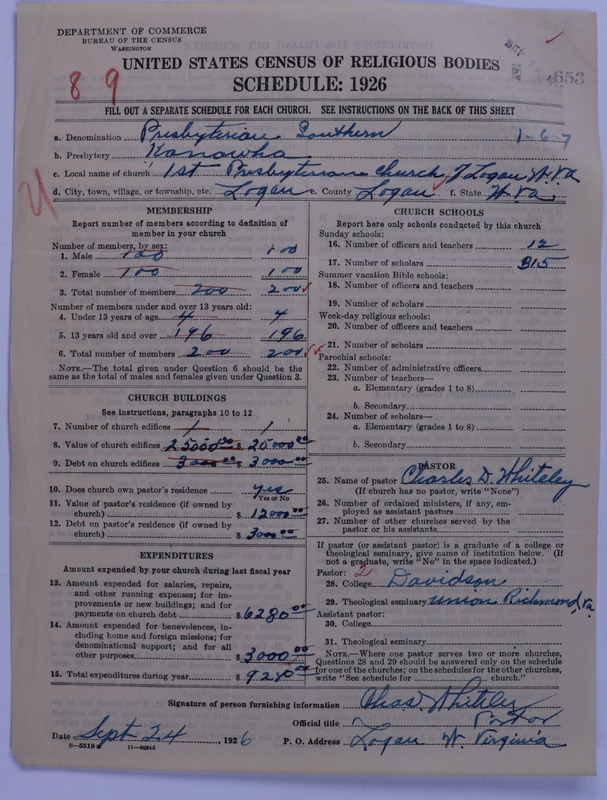 DEPARTMENT OF COMMERCE
BUREAU OF THE CENSUS
WASHINGTON
653
UNITED STATES CENSUS OF RELIGIOUS BODIES
8 9
SCHEDULE: 1926
FILL OUT A SEPARATE SCHEDULE FOR EACH CHURCH. SEE INSTRUCTIONS ON THE BACK OF THIS SHEET
a. Denomination Presbyterian Southern 1-6-7
b. Presbytery Kanawha
c. Local name of church 1st Presbyterian church of Logan W. Va
d. City, town, village, or township, etc. Logan e. County Logan f. State W. Va.
MEMBERSHIP
Report number of members according to definition of
member in your church
Number of members, by sex:
1. Male 100 100
2. Female 100 100
3. Total number of members 200 200
Number of members under and over 13 years old:
4. Under 13 years of age 4 4
5. 13 years old and over 196 196
6. Total number of members 200 200
NOTE.—The total given under Question 6 should be
same as the total of males and females given under Question 3.
CHURCH BUILDINGS
See instructions, paragraphs 10 to 12
7. Number of church edifices 1 1
8. Value of church edifices 25000.00 $ 25000.00
9. Debt on church edifices 3000.00 $ 3000.00
10. Does church own pastor's residence yes
Yes or No
11. Value of pastor's residence (if owned by
church) $ 12000.00
12. Debt on pastor's residence (if owned by
church) $ 3000.00
EXPENDITURES
Amount expended by your church during last fiscal year
13. Amount expended for salaries, repairs,
and other running expenses; for im-
provements or new buildings; and for
payments on church debt $ 6280.00
14. Amount expended for benevolences, in-
cluding home and foreign missions; for
denominational support; and for all
other purposes $ 3000.00
15. Total expenditures during year $ 9280.00
CHURCH SCHOOLS
Report here only schools conducted by this church
Sunday schools:
16. Number of officers and teachers 12
17. Number of scholars 315
Summer vacation Bible schools:
18. Number of officers and teachers
19. Number of scholars
Week-day religious schools:
20. Number of officers and teachers
21. Number of scholars
Parochial schools:
22. Number of administrative officers
23. Number of teachers—
a. Elementary (grades 1 to 8)
b. Secondary
24. Number of scholars—
a. Elementary (grades 1 to 8)
b. Secondary
PASTOR
25. Name of pastor Charles D. Whiteley
(If church has no pastor, write "None")
26. Number of ordained ministers, if any, em-
ployed as assistant pastors
27. Number of other churches served by the
pastor or his assistants
If pastor (or assistant pastor) is a graduate of a college or
theological seminary, give name of institution below. (If
not a graduate, write "No" in the space indicated.)
Pastor: 2
28. College Davidson
29. Theological seminary Union Richmond, Va.
Assistant pastor:
30. College
31. Theological seminary
NOTE.—Where one pastor serves two or more churches,
Questions 28 and 29 should be answered only on the schedule
for one of the churches; on the schedules for the other churches,
write "See schedule for church."
Signature of person furnishing information Chas D Whiteley
Official title Pastor
Date Sept 24, 1926 P. O. Address Logan W. Virginia
8-5518a 11-9004d